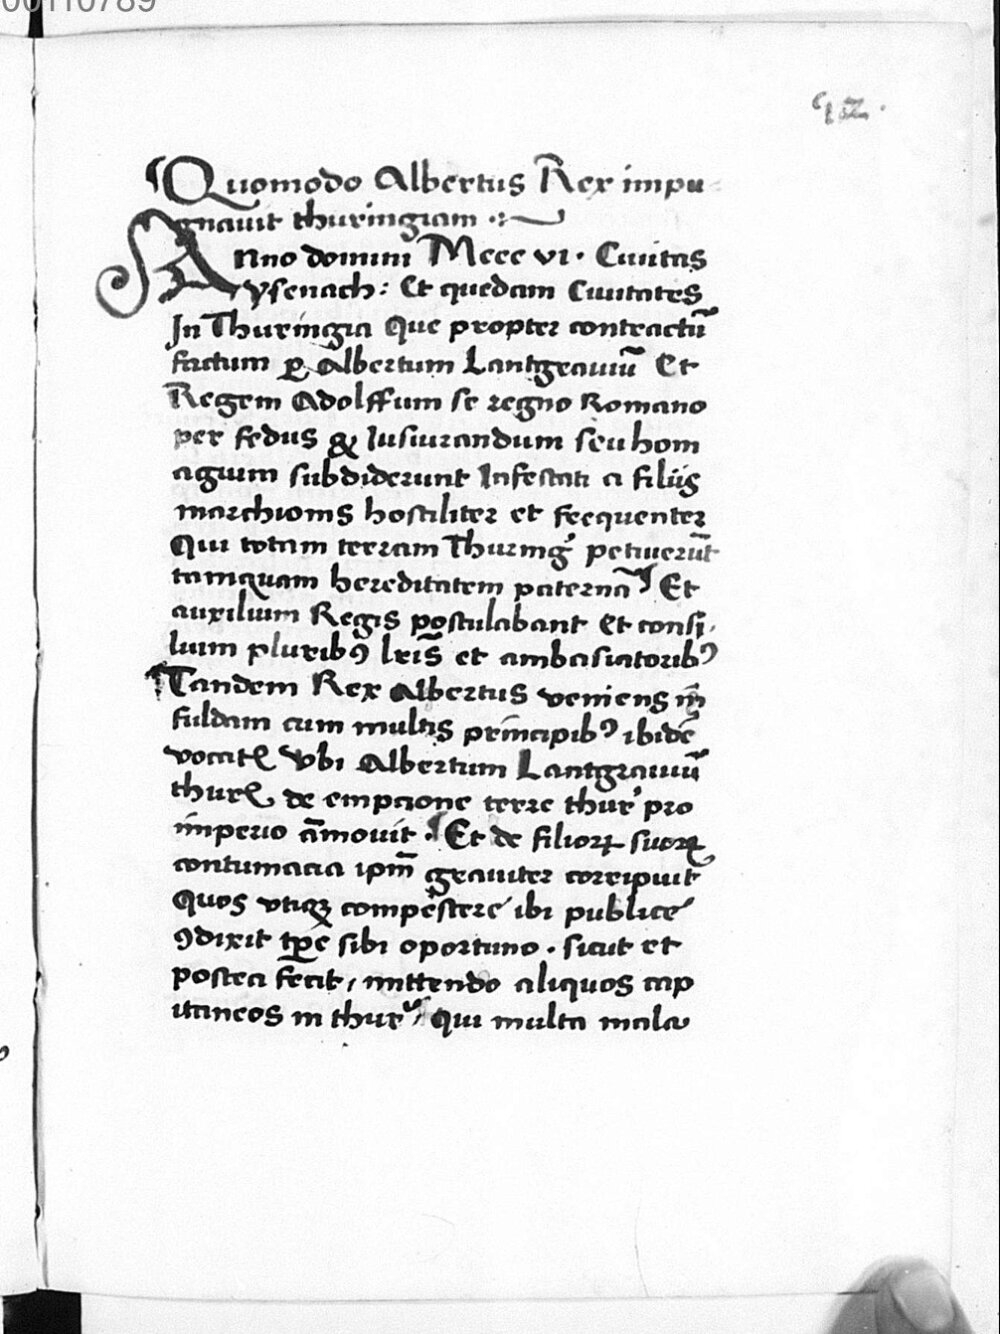 00110789
Quomodo Albertus Rex impu
gnauit thuringiam
Anno domini Mccc vi. Ciuitas
ysenach: Et quedam Ciuitates
In Thuringia Que propter contractū
factum ꝑ Albertum Lantgrauiū Et
Regem Adolffum se regno Romano
per fedus & Iusiurandum seu hom
agium subdiderunt Infestati a filijs
marchionis hostiliter et frequenter
Qui totam terram Thuring' petiuerūt
tamquam hereditatem paternā ¶ Et
auxilium Regis postulabant Et consi
lium pluribꝯ lrīs et ambasiatoribꝯ
¶ Tandem Rex Albertus veniens in
fuldam cum multis principibꝯ ibidē
vocatꝭ Vbi Albertum Lantgrauiū
thurꝭ de empcione terre thur' pro
imperio āmouit. ¶ Et de filioꝝ suoꝝ
contumacia ipm̄ grauiter corripuit
Quos vtiqꝫ compescere ibi publice
ꝯdixit tꝑe sibi oportuno. sicut et
postea fecit, mittendo aliquos cap
itaneos in thur' Qui multa mala